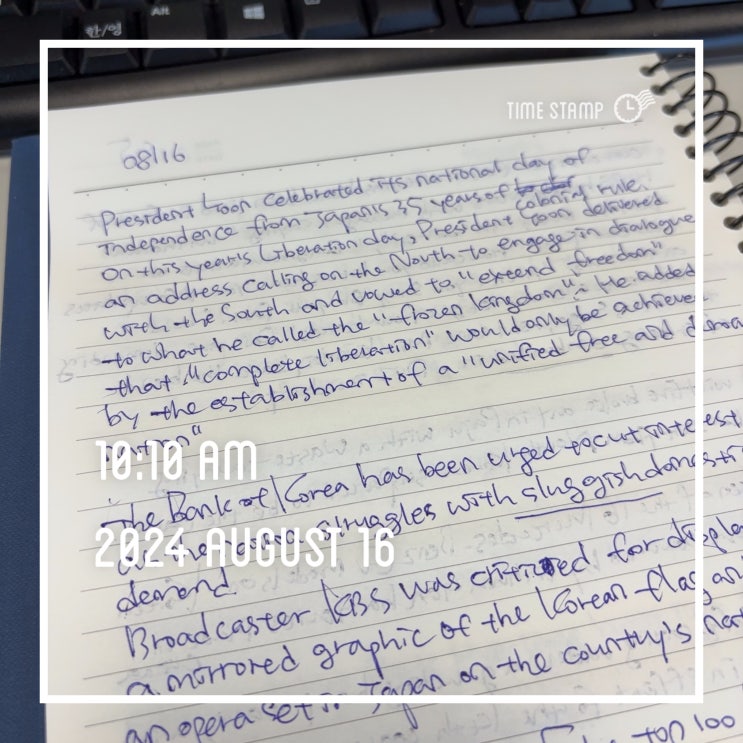 한/영
Alt
TIME STAMP
08/16
President Yoon celebrated its national day of
independence from Japan's 35 years of colonial rule.
On this year's Liberation day, President Yoon delivered
an address calling on the North to engage in dialogue
with the South and vowed to "extend freedom"
to what he called the "frozen kingdom". He added
that "complete liberation" would only be achieved
by the establishment of a "unified free and
10:10 AM
The Bank of Korea has been urged to cut interest
struggles with sluggish domestic
2024 AUGUST 16
demand.
Broadcaster KBS was for
a mirrored graphic of the Korean flag an
an opera set in Japan on the country's nat
top 100